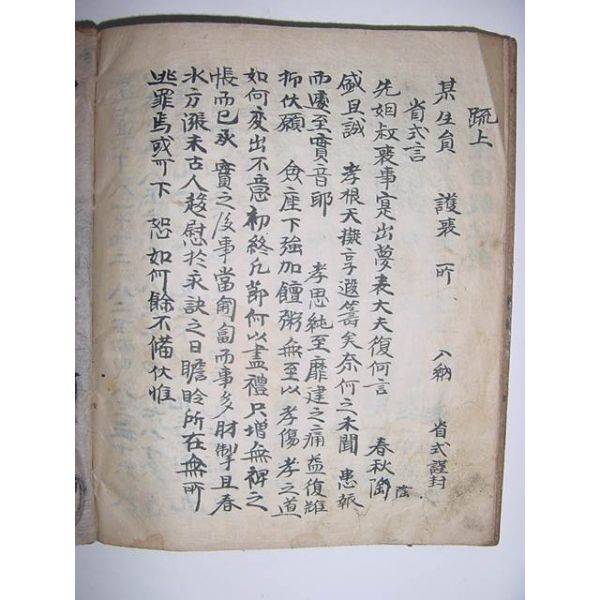 疏上
某生員 護喪 所 入納 省式謹封
省式言
先妣叔喪事寔出夢表大夫復何言 春秋
盛且誠 孝根天擬享遐筭矣奈何之未聞 患報
而遽至實音耶 孝思純至靡建之痛益復難
抑伏願 僉座下強加饘粥無至以孝傷孝之道
如何変出不意初終凡節何以盡禮只增無裨之
悵而已永 實之後事當匍匐而事多財掣且春
水方漲未古人趍慰於永訣之日瞻聆所在無所
逃罪焉或可下 恕如何餘不備伏惟